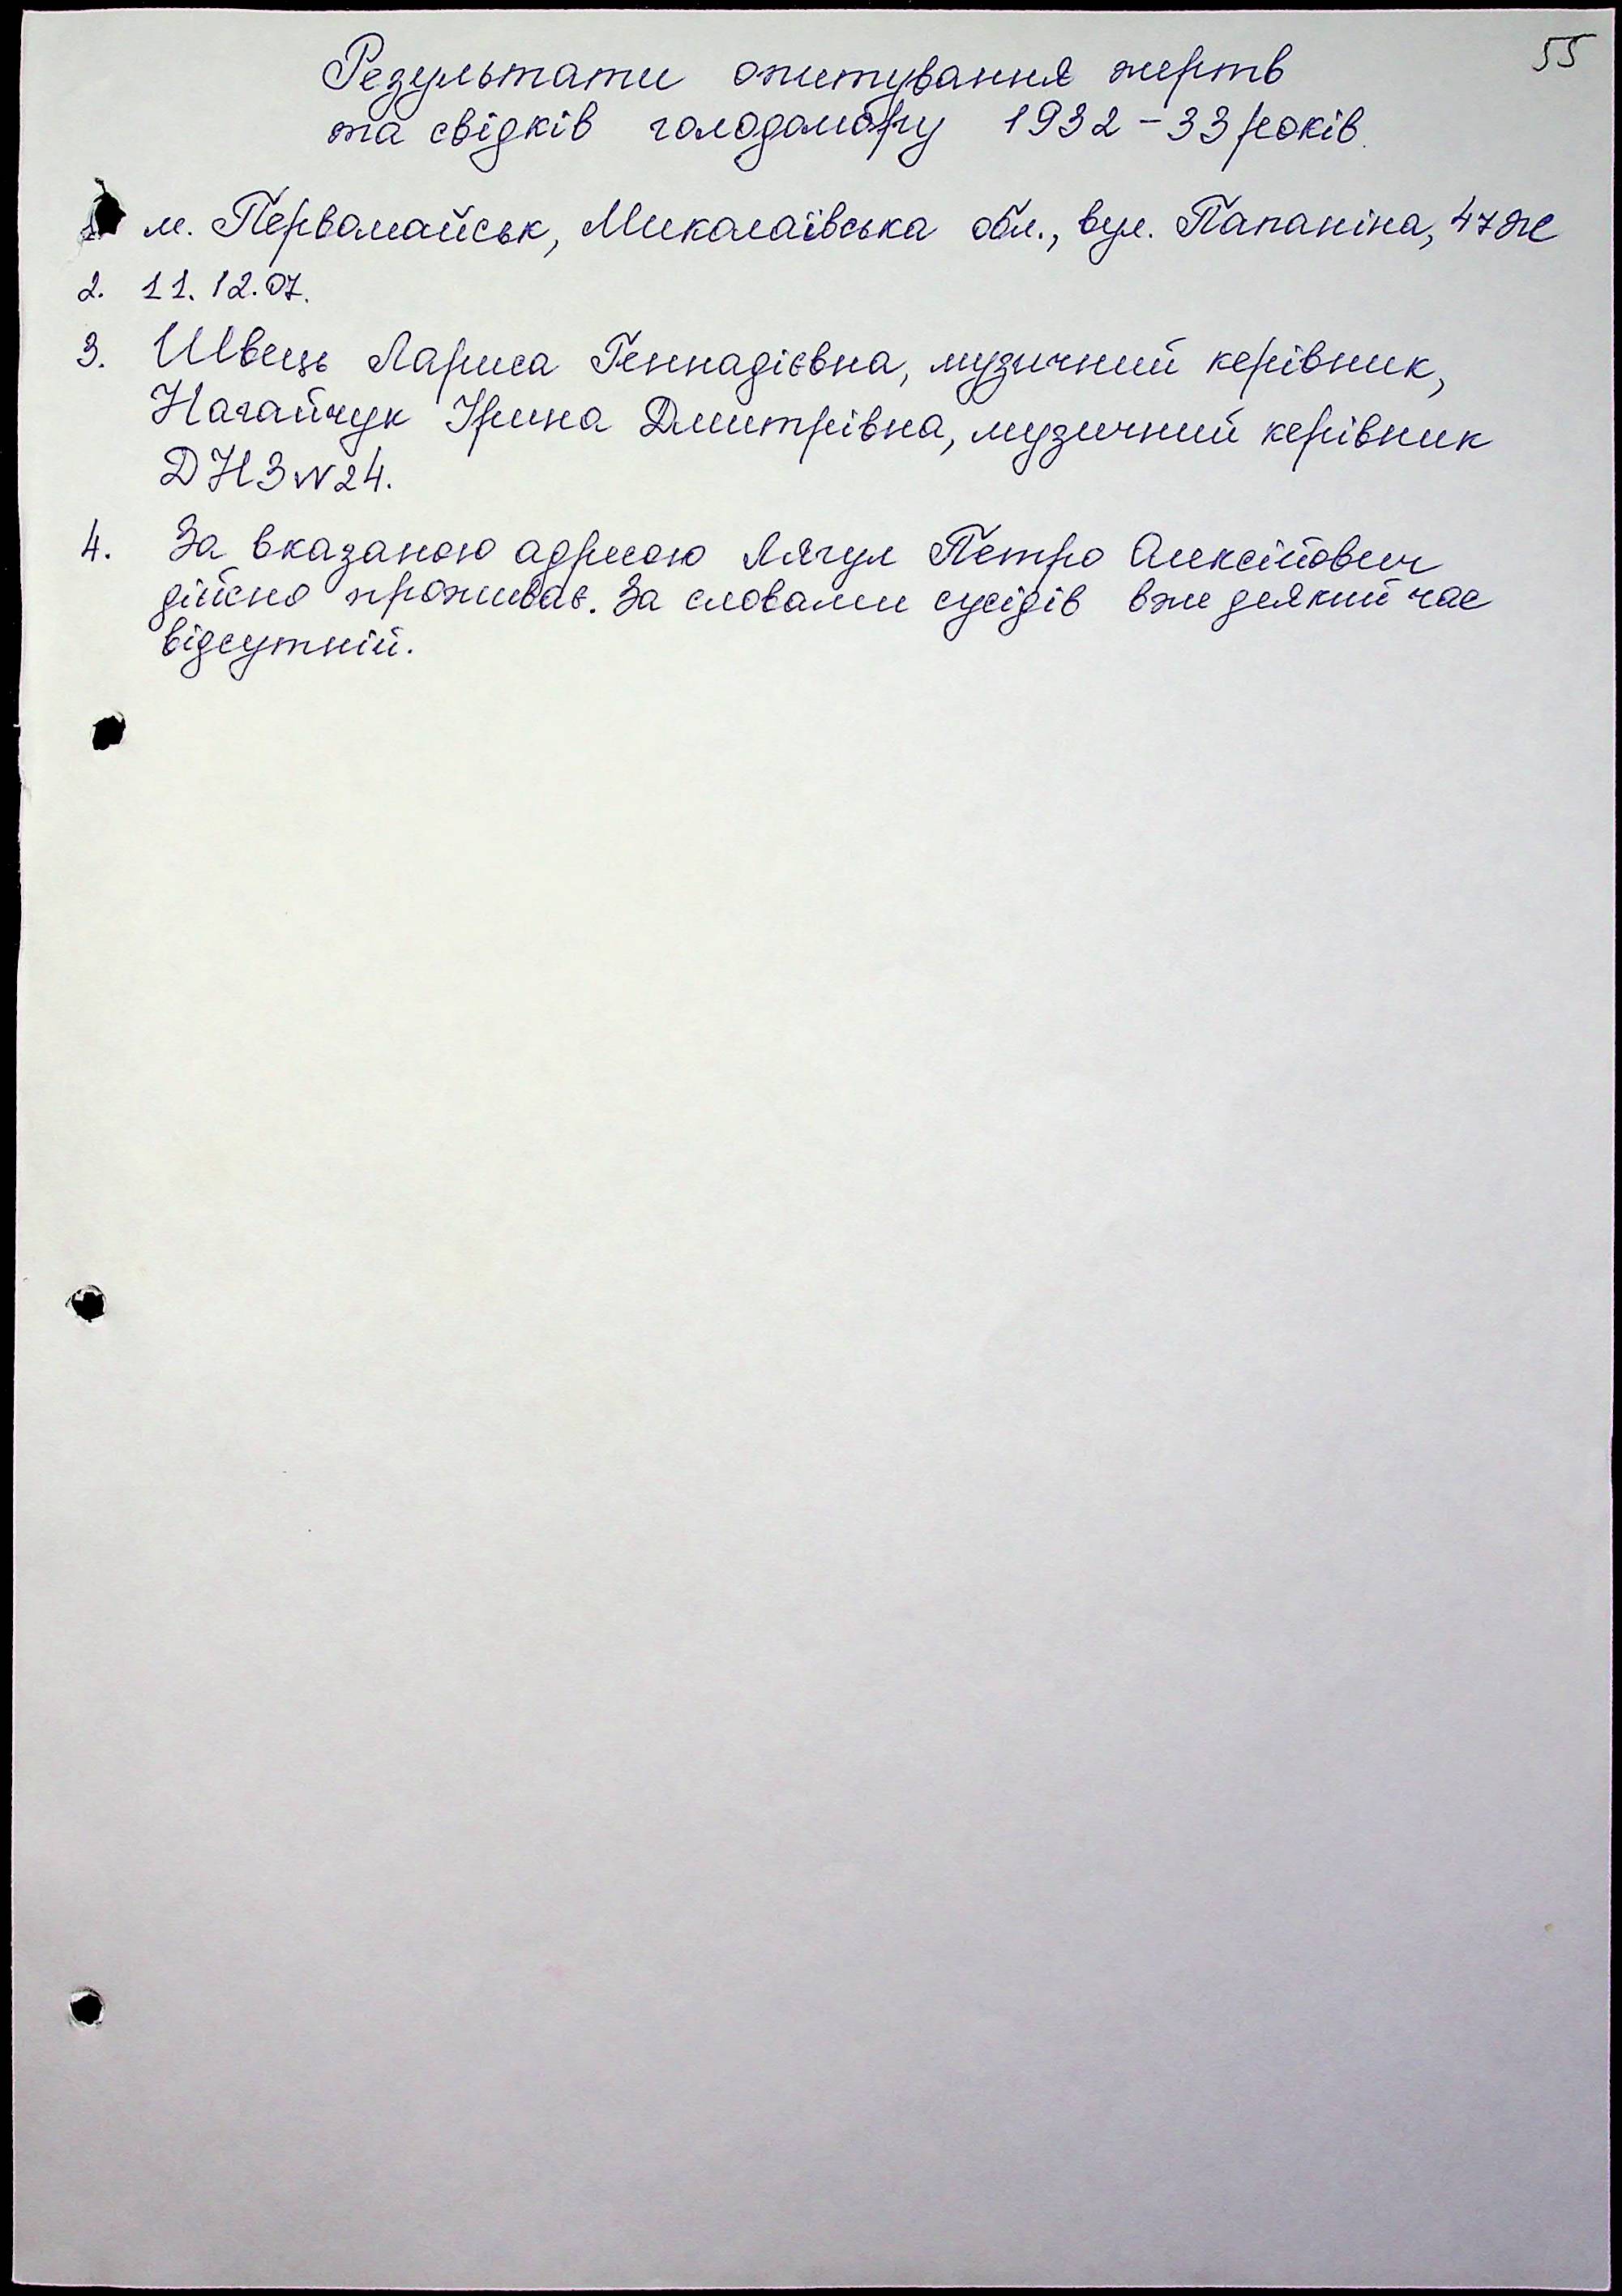 55
Результати опитування жертв
та свідків голодомору 1932-33 років.
м. Первомайськ, Миколаївська обл., вул. Папаніна, 47ж
2. 11.12.07.
3. Швець Лариса Геннадієвна, музичний керівник,
Нагайчук Ірина Дмитрівна, музичний керівник
ДНЗ №24.
4. За вказаною адресою Лягул Петро Алексійович
дійсно проживає. За словами сусідів вже деякий час
відсутній.